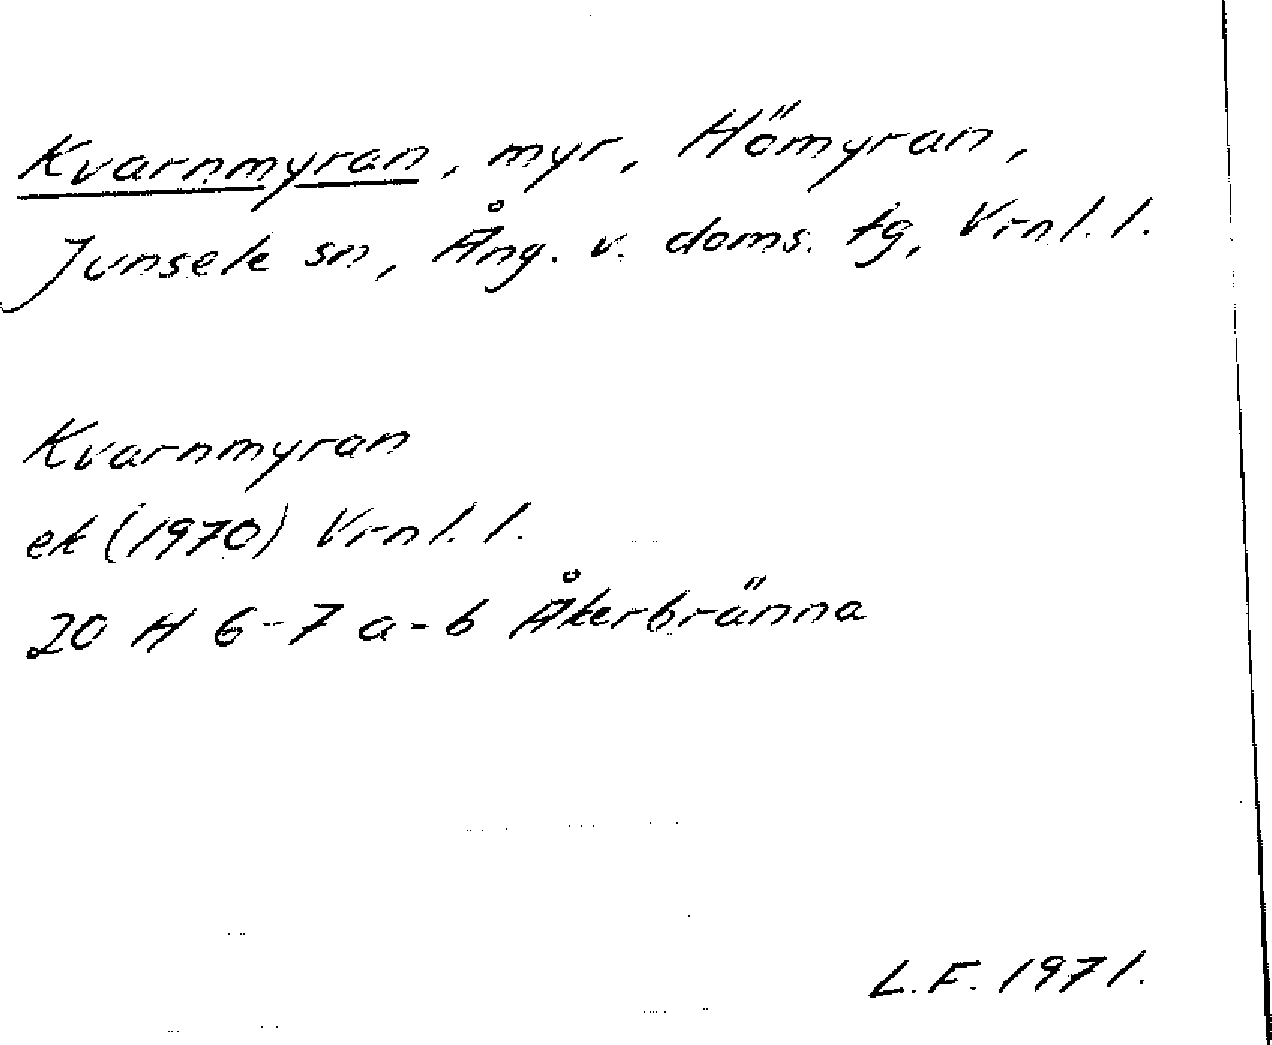 Kvarnmyran, myr, Hömyran,
Junsele sn, Ång. v. doms. tg, Vrnl. l.
Kvarnmyran
ek (1970) Vrnl. l.
20 H 6-7 a-b Åkerbränna
L.F. 1971.